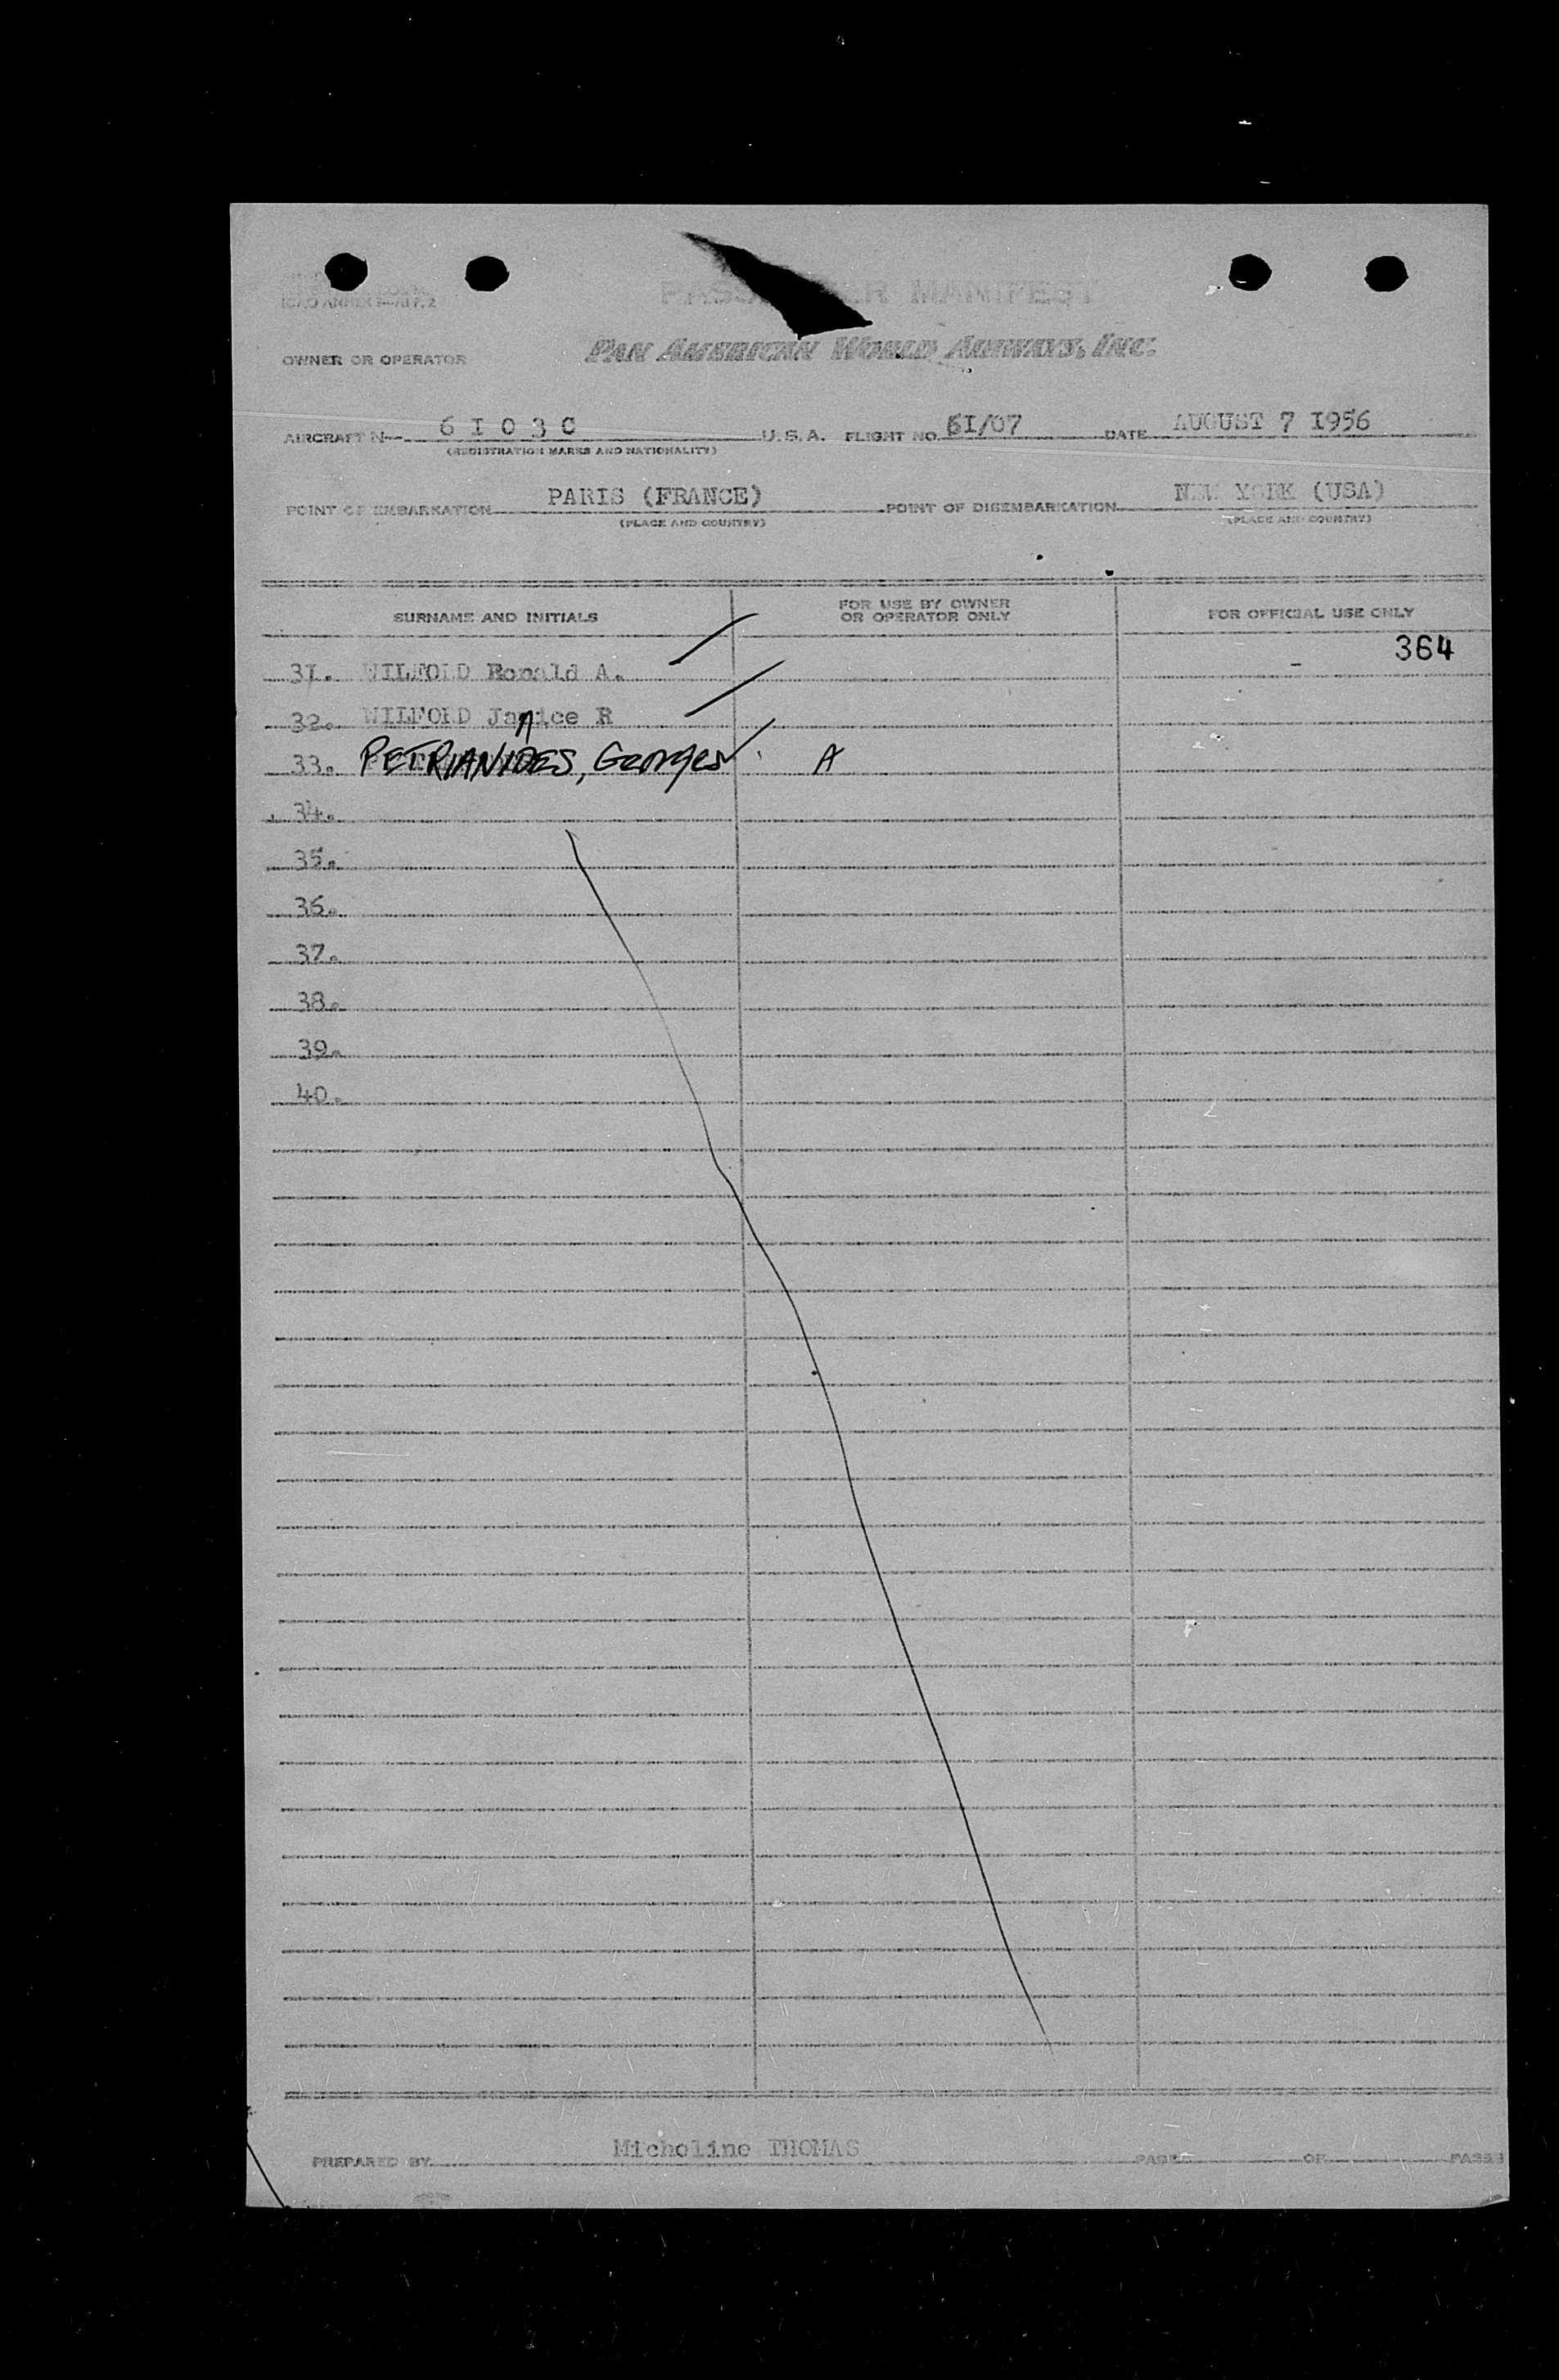 ICAO ANNEX 9—APP. 2
PASSENGER MANIFEST
OWNER OR OPERATOR PAN AMERICAN WORLD AIRWAYS, INC.
AIRCRAFT N 6 I 0 3 C U.S.A. FLIGHT NO. 6I/07 DATE AUGUST 7 I956
(REGISTRATION MARKS AND NATIONALITY)
POINT OF EMBARKATION PARIS (FRANCE) POINT OF DISEMBARKATION NEW YORK (USA)
(PLACE AND COUNTRY) (PLACE AND COUNTRY)
SURNAME AND INITIALS FOR USE BY OWNER OR OPERATOR ONLY FOR OFFICIAL USE ONLY
364
3I. WILFOLD Ronald A.
32. WILFORD Janice R
33. PETRIANIDES, Georges A
34.
35.
36.
37.
38.
39.
40.
PREPARED BY Micheline THOMAS PAGE OF PAGES